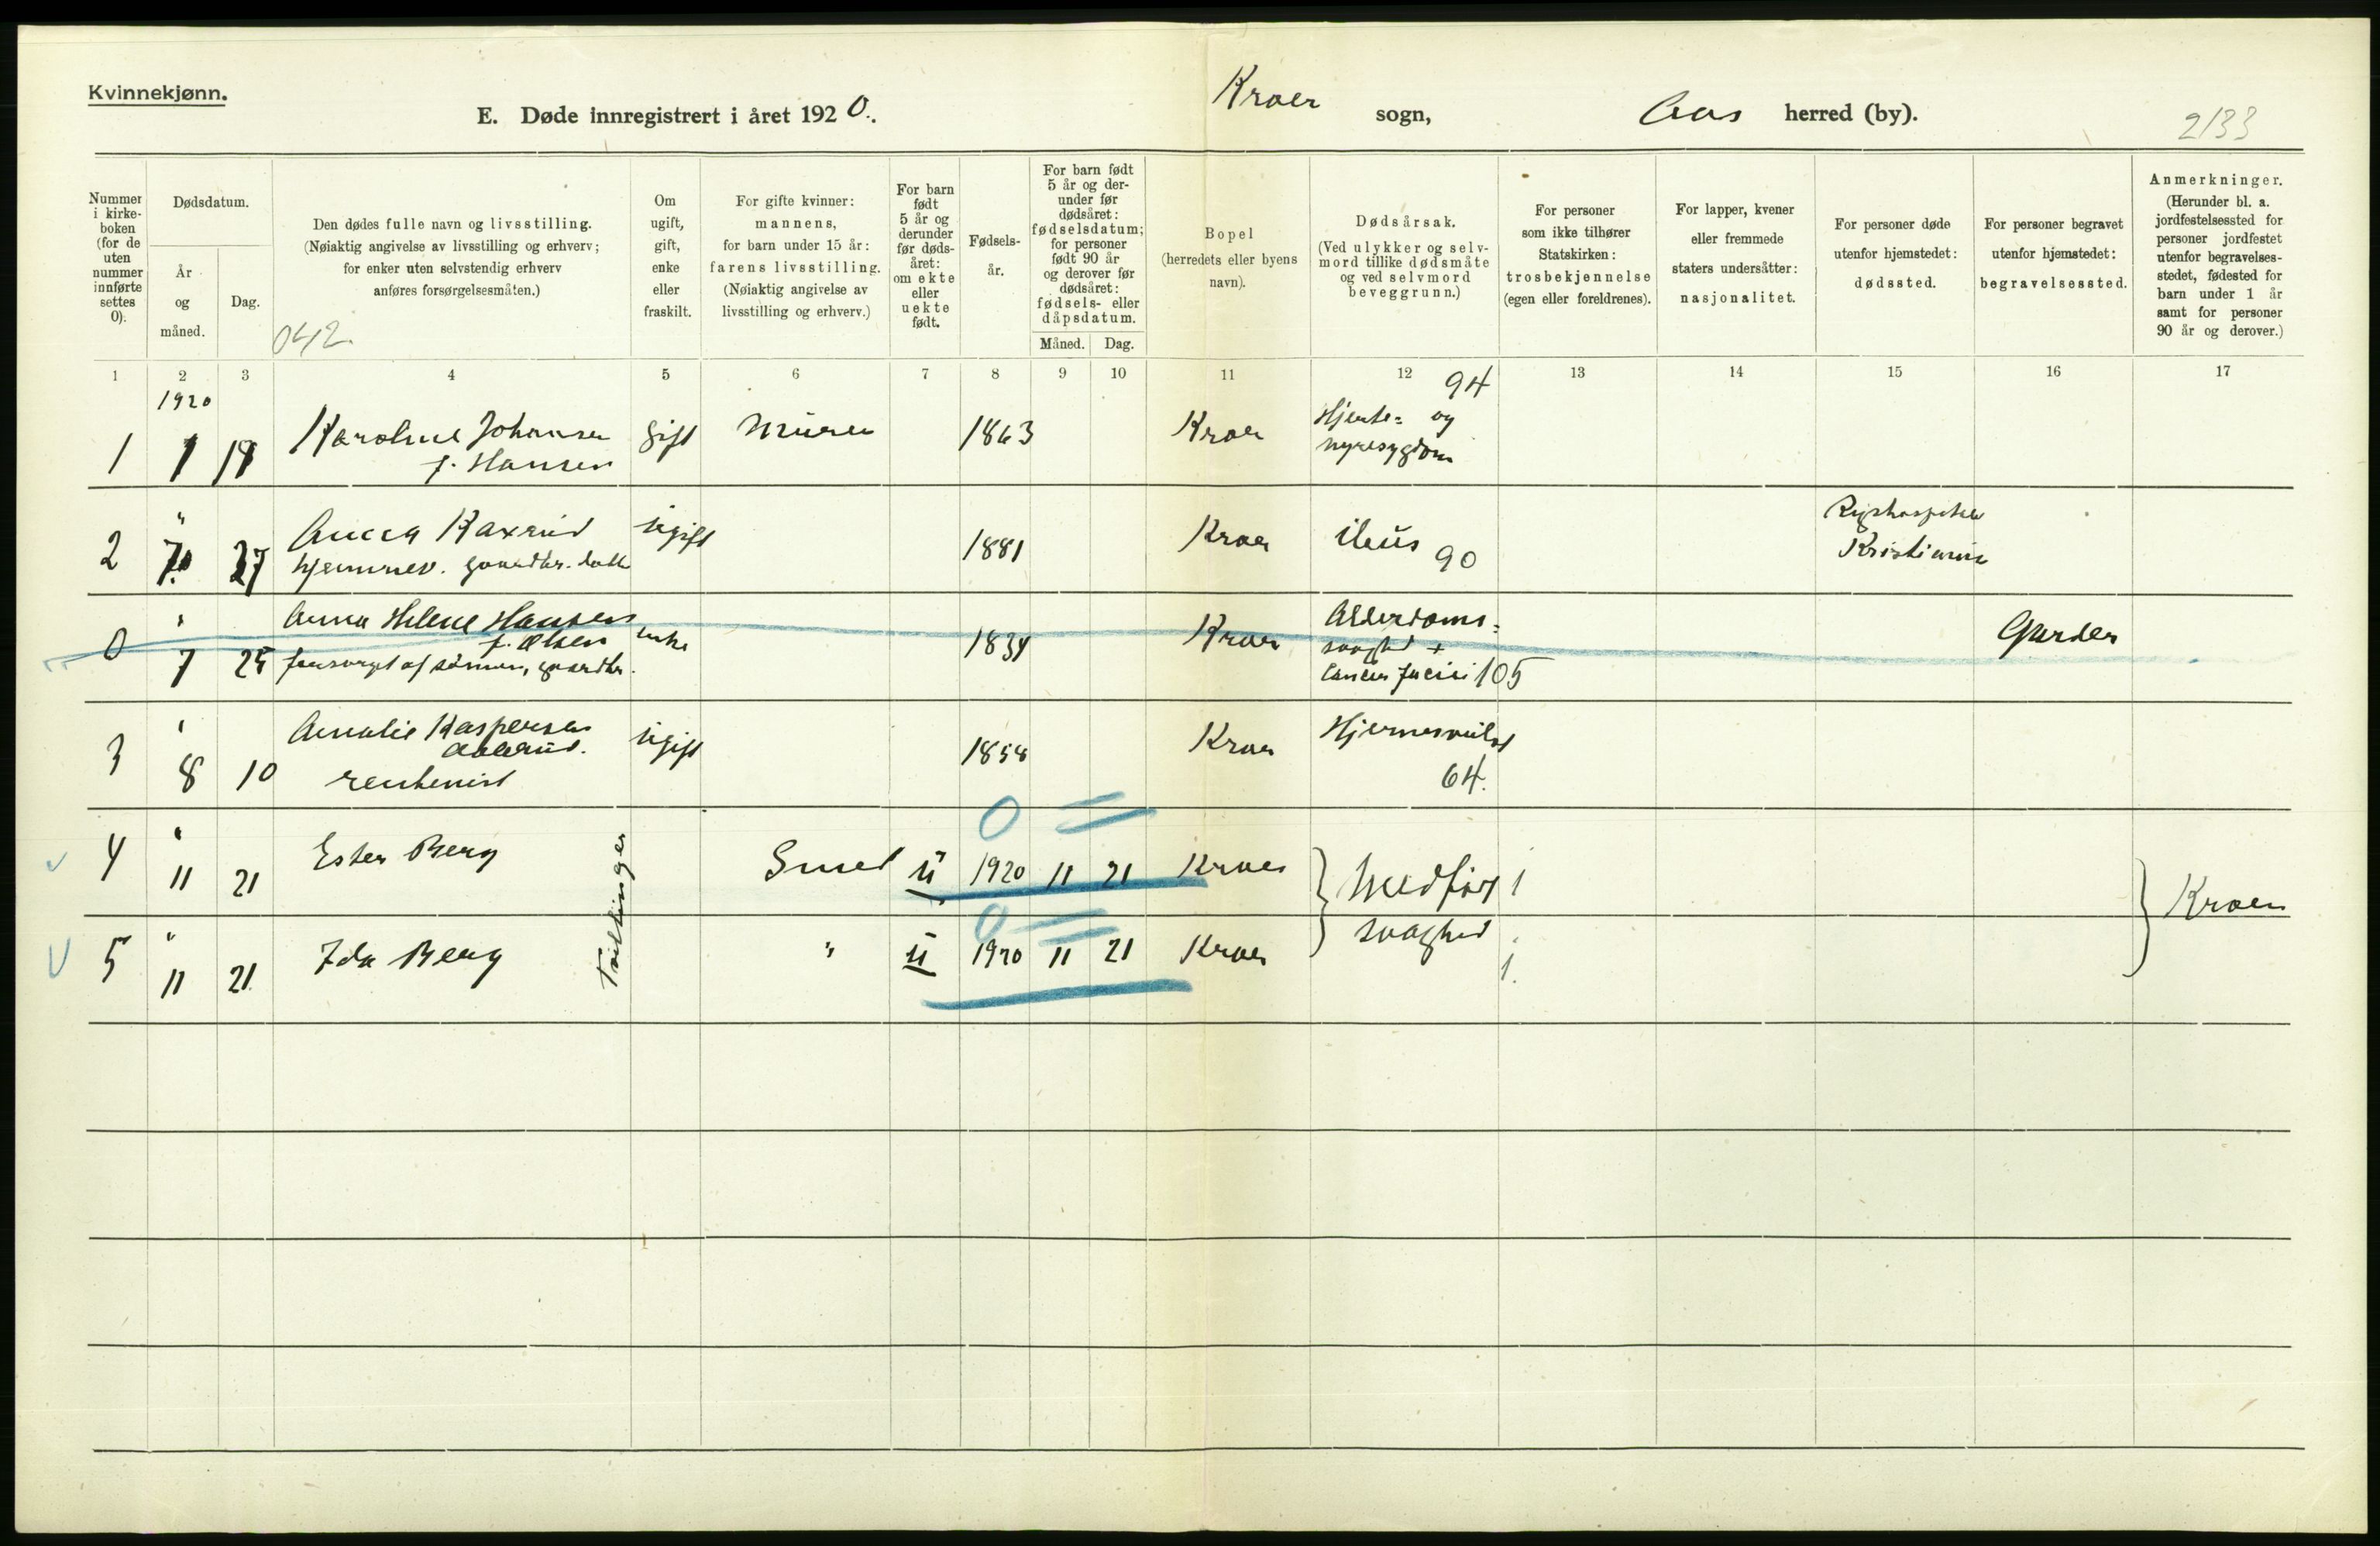 Kvinnekjønn.
E. Døde innregistrert i året 1920.
Kroer sogn,
Aas herred (by).
2133
Nummer i kirke-boken (for de uten nummer innførte settes 0).
Dødsdatum.
År og måned.
Dag.
Den dødes fulle navn og livsstilling.
(Nøiaktig angivelse av livsstilling og erhverv;
for enker uten selvstendig erhverv
anføres forsørgelsesmåten.)
042.
Om ugift, gift, enke eller fraskilt.
For gifte kvinner:
mannens,
for barn under 15 år:
farens livsstilling.
(Nøiaktig angivelse av
livsstilling og erhverv.)
For barn født 5 år og derunder før døds-året: om ekte eller uekte født.
Fødsels-år.
For barn født 5 år og der-under før dødsåret: fødselsdatum; for personer født 90 år og derover før dødsåret: fødsels- eller dåpsdatum.
Måned. Dag.
Bopel
(herredets eller byens
navn).
Dødsårsak.
(Ved ulykker og selv-
mord tillike dødsmåte
og ved selvmord
beveggrunn.)
For personer
som ikke tilhører
Statskirken:
trosbekjennelse
(egen eller foreldrenes).
For lapper, kvener
eller fremmede
staters undersåtter:
nasjonalitet.
For personer døde
utenfor hjemstedet:
dødssted.
For personer begravet
utenfor hjemstedet:
begravelsessted.
Anmerkninger.
(Herunder bl. a.
jordfestelsessted for
personer jordfestet
utenfor begravelses-
stedet, fødested for
barn under 1 år
samt for personer
90 år og derover.)
1 2 3 4 5 6 7 8 9 10 11 12 13 14 15 16 17
1920
1 1 18 Karoline Johansen gift Murer 1863 Kroer Hjerte- og 94
f. Hansen nyresygdom
2 " 27 Anna Kaxrud ugift 1881 Kroer ileus 90 Rigshospitalet
hjemmev. gaardbr. datter Kristiania
0 " 7 25 Anna Helene Hansen enke 1834 Kroer Alderdoms- Garder
f. Olsen svaghed +
forsørget af sønnen, gaardbr. cancer faciei 105
3 " 8 10 Amalie Kaspersen ugift 1858 Kroer Hjerneslag
rentenist 64.
4 " 11 21 Ester Berg Tvillinger Smed u 1920 11 21 Kroer Medfør 1 Kroer
0 =
5 " 11 21 Ida Berg " u 1920 11 21 Kroer svaghed 1.
0 =